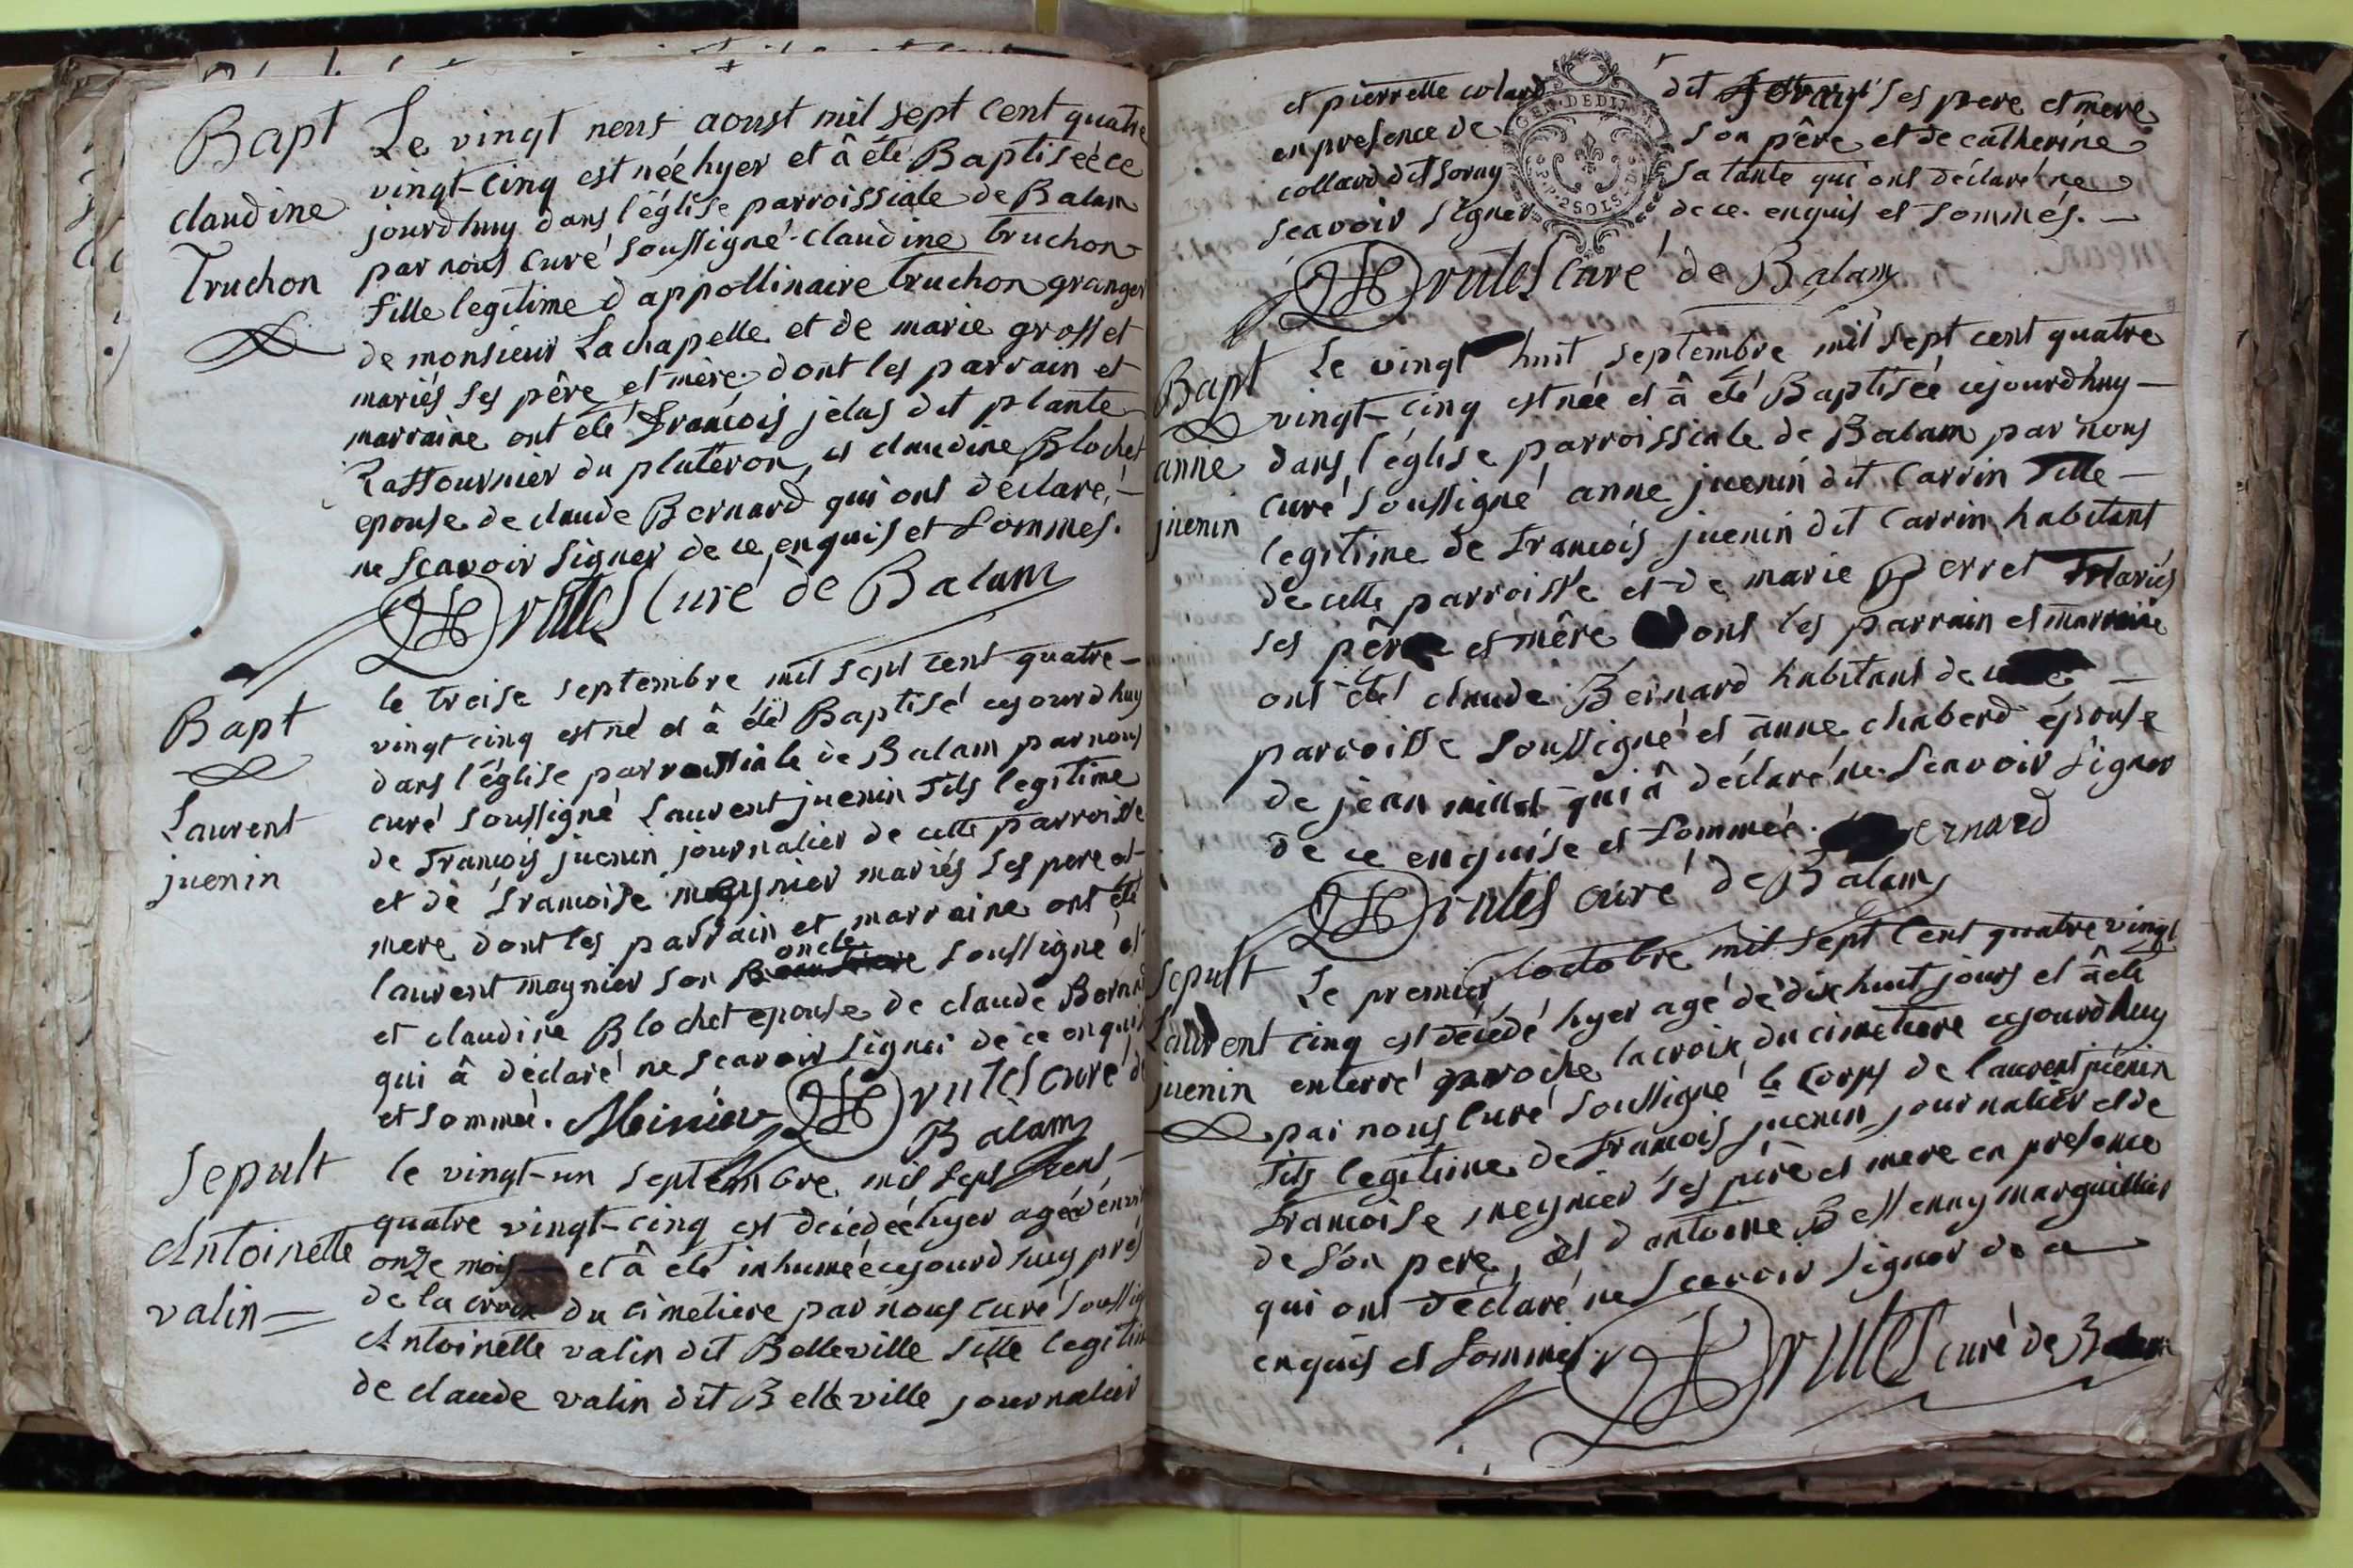 Bapt
claudine
Truchon
Le vingt neuf aoust mil sept cent quatre
vingt-cinq est néé hyer et â été Baptiséé ce
jourdhuy dans l'église parroissiale de Balan
par nous curé soussigné claudine truchon
fille legitime d'appollinaire truchon granger
de monsieur Lachapelle et de marie grosset
mariés ses pêre et mère, dont les parrain et
marraine ont été francois jélas dit plante
Rattournier du plateron, et claudine Blochet
epouse de claude Bernard qui ont déclaré,
ne scavoir signer de ce enquis et sommés.
Drutes curé de Balam
Bapt
Laurent
juenin
le treise septembre mil sept cent quatre-
vingt cinq est né et â été Baptisé cejourdhuy
dans l'église parroissiale de Balam par nous
curé soussigné Laurent juenin fils legitime
de francois juenin journalier de cette parroisse
et de francoise meynier mariés ses pere et
mere dont les parrain et marraine ont été
oncle
laurent maynier son soussigné et
et claudine Blochet epouse de claude Bernard
qui â déclaré ne scavoir signer de ce enquis
et sommée. Meinier Drutes curé de
Balam
Sepult
Antoinette
valin
le vingt-un septembre mil sept cent-
quatre vingt-cinq est décédéé hyer agéé d'envi
onze mois et â été inhuméé cejourdhuy prés
de la croix du cimetiere par nous curé soussig
Antoinette valin dit Belleville fille legitim
de claude valin dit Belleville journalier
et pierrette colard dit foray ses pere et mere
en presence de son pêre et de catherine
collard dit foray sa tante qui ont déclaré ne
scavoir signer de ce enquis et sommés.
GEN. DE DIJ
2 SOLS
Drutes curé de Balam
Bapt
anne
juenin
Le vingt huit septembre mil sept cent quatre
vingt-cinq est néé et â été Baptiséé cejourdhuy
dans l'église parroissiale de Balam par nous
curé soussigné anne juenin dit Carrin fille
legitime de francois juenin dit Carrin habitant
de cette parroisse et de marie Perret mariés
ses pêre et mêre dont les parrain et marraine
ont été claude Bernard habitant de cette
parroisse soussigné et anne chaberd épouse
de jean millet qui â déclaré ne scavoir signer
de ce enquise et sommeé. Bernard
Drutes curé de Balam
Sepult
Laurent
juenin
Le premier octobre mil sept cent quatre vingt
cinq est décédé hyer agé de dix huit jours et â été
enterré proche la croix du cimetiere cejourdhuy
par nous curé soussigné le corps de laurent juenin
fils legitime de francois juenin journalier et de
francoise meynier ses pére et mere en presence
de son pere, et d'antoine Bessenay marguillier
qui ont déclaré ne scavoir signer de ce
enquis et sommés Drutes curé de Balam